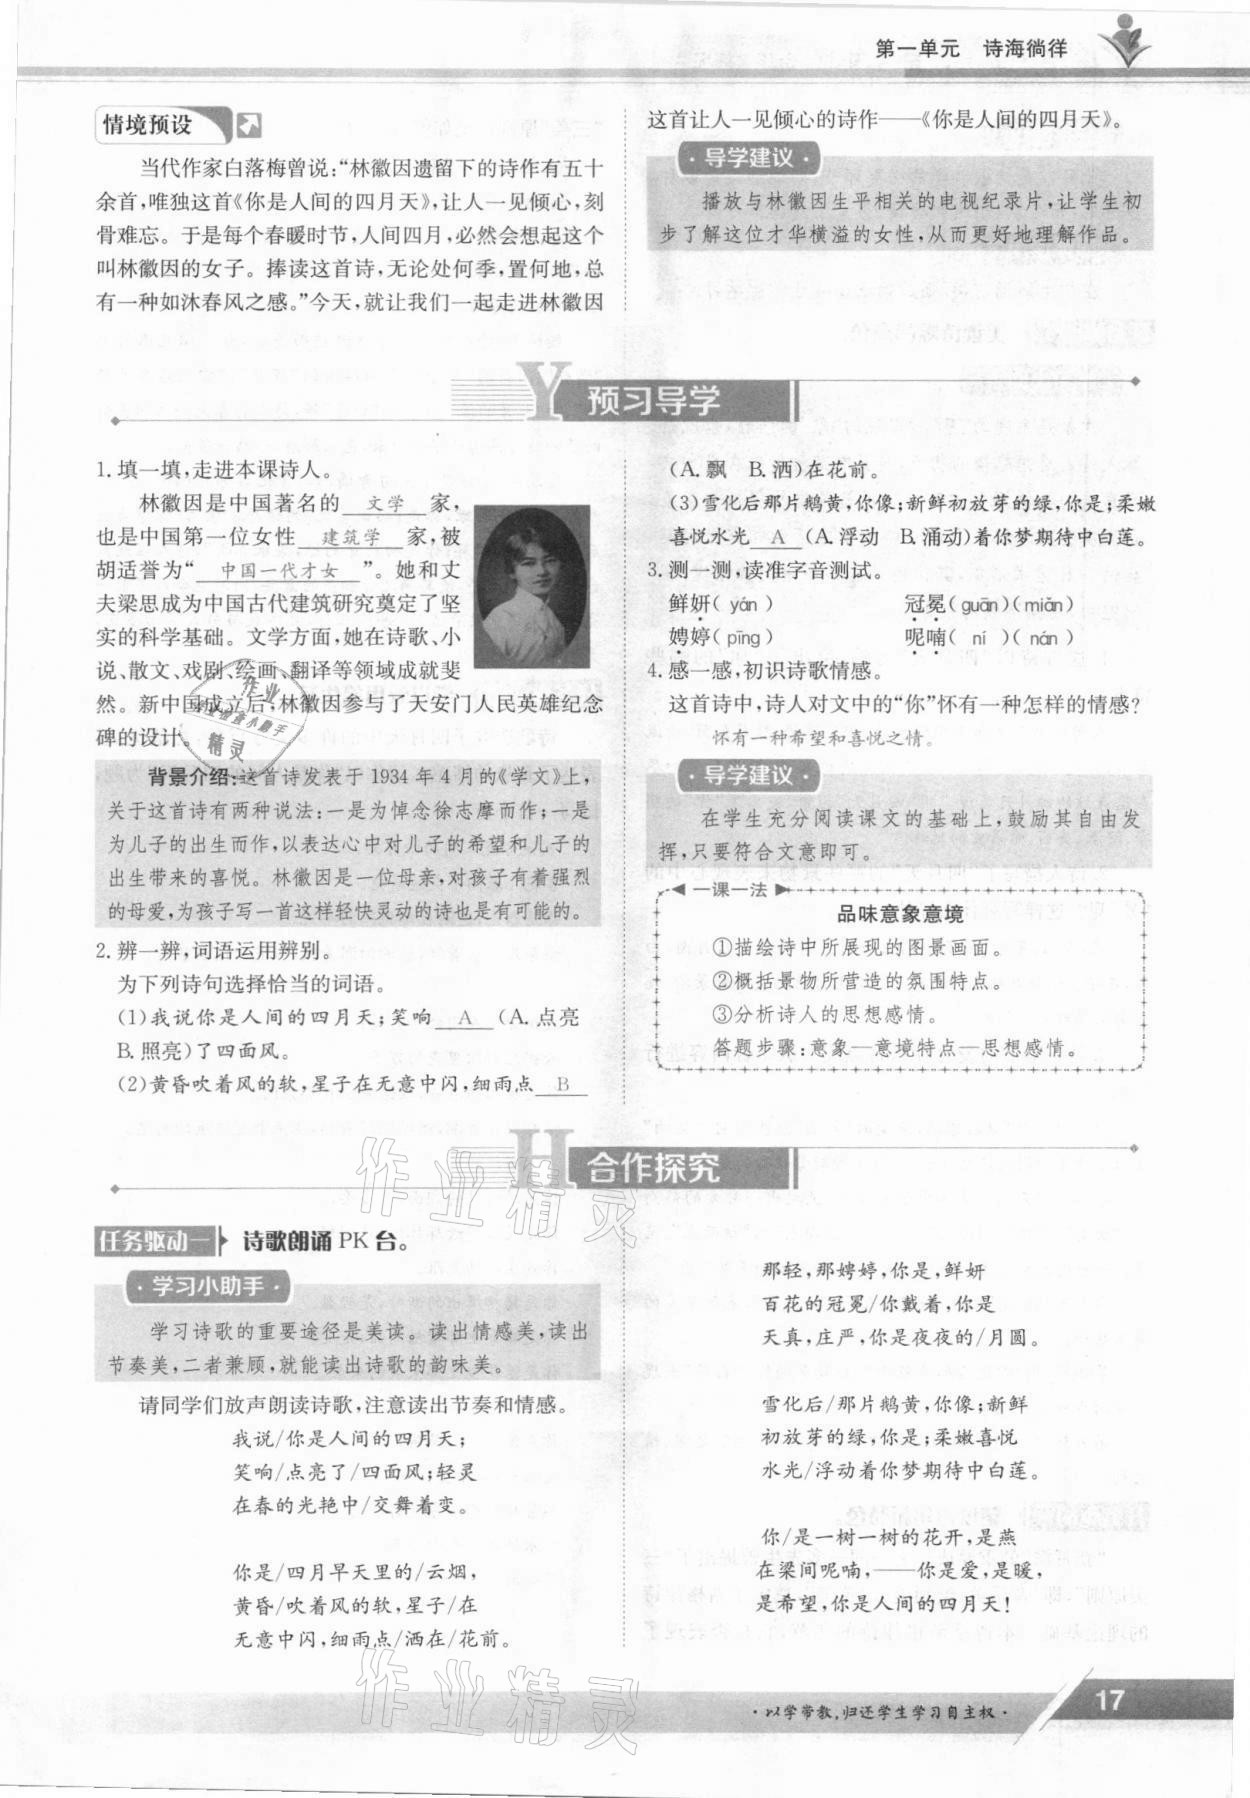 第一单元 诗海徜徉
情境预设
当代作家白落梅曾说:“林徽因遗留下的诗作有五十
余首,唯独这首《你是人间的四月天》,让人一见倾心,刻
骨难忘。于是每个春暖时节,人间四月,必然会想起这个
叫林徽因的女子。捧读这首诗,无论处何季,置何地,总
有一种如沐春风之感。”今天,就让我们一起走进林徽因
这首让人一见倾心的诗作——《你是人间的四月天》。
·导学建议·
播放与林徽因生平相关的电视纪录片,让学生初
步了解这位才华横溢的女性,从而更好地理解作品。
Y 预习导学
1. 填一填,走进本课诗人。
林徽因是中国著名的 文学 家,
也是中国第一位女性 建筑学 家,被
胡适誉为“ 中国一代才女 ”。她和丈
夫梁思成为中国古代建筑研究奠定了坚
实的科学基础。文学方面,她在诗歌、小
说、散文、戏剧、绘画、翻译等领域成就斐
然。新中国成立后,林徽因参与了天安门人民英雄纪念
碑的设计。
背景介绍:这首诗发表于 1934 年 4 月的《学文》上,
关于这首诗有两种说法:一是为悼念徐志摩而作;一是
为儿子的出生而作,以表达心中对儿子的希望和儿子的
出生带来的喜悦。林徽因是一位母亲,对孩子有着强烈
的母爱,为孩子写一首这样轻快灵动的诗也是有可能的。
2. 辨一辨,词语运用辨别。
为下列诗句选择恰当的词语。
(1)我说你是人间的四月天;笑响 A (A. 点亮
B. 照亮)了四面风。
(2)黄昏吹着风的软,星子在无意中闪,细雨点 B
(A. 飘 B. 洒)在花前。
(3)雪化后那片鹅黄,你像;新鲜初放芽的绿,你是;柔嫩
喜悦水光 A (A. 浮动 B. 涌动)着你梦期待中白莲。
3. 测一测,读准字音测试。
鲜妍( yán ) 冠冕(guān)(miǎn)
娉婷(pīng) 呢喃( ní )(nán)
4. 感一感,初识诗歌情感。
这首诗中,诗人对文中的“你”怀有一种怎样的情感?
怀有一种希望和喜悦之情。
·导学建议·
在学生充分阅读课文的基础上,鼓励其自由发
挥,只要符合文意即可。
一课一法
品味意象意境
①描绘诗中所展现的图景画面。
②概括景物所营造的氛围特点。
③分析诗人的思想感情。
答题步骤:意象—意境特点—思想感情。
H 合作探究
任务驱动一 诗歌朗诵 PK 台。
·学习小助手·
学习诗歌的重要途径是美读。读出情感美,读出
节奏美,二者兼顾,就能读出诗歌的韵味美。
请同学们放声朗读诗歌,注意读出节奏和情感。
我说/你是人间的四月天;
笑响/点亮了/四面风;轻灵
在春的光艳中/交舞着变。
你是/四月早天里的/云烟,
黄昏/吹着风的软,星子/在
无意中闪,细雨点/洒在/花前。
那轻,那娉婷,你是,鲜妍
百花的冠冕/你戴着,你是
天真,庄严,你是夜夜的/月圆。
雪化后/那片鹅黄,你像;新鲜
初放芽的绿,你是;柔嫩喜悦
水光/浮动着你梦期待中白莲。
你/是一树一树的花开,是燕
在梁间呢喃,——你是爱,是暖,
是希望,你是人间的四月天!
作业精灵
作业精灵
·以学带教,归还学生学习自主权·
17